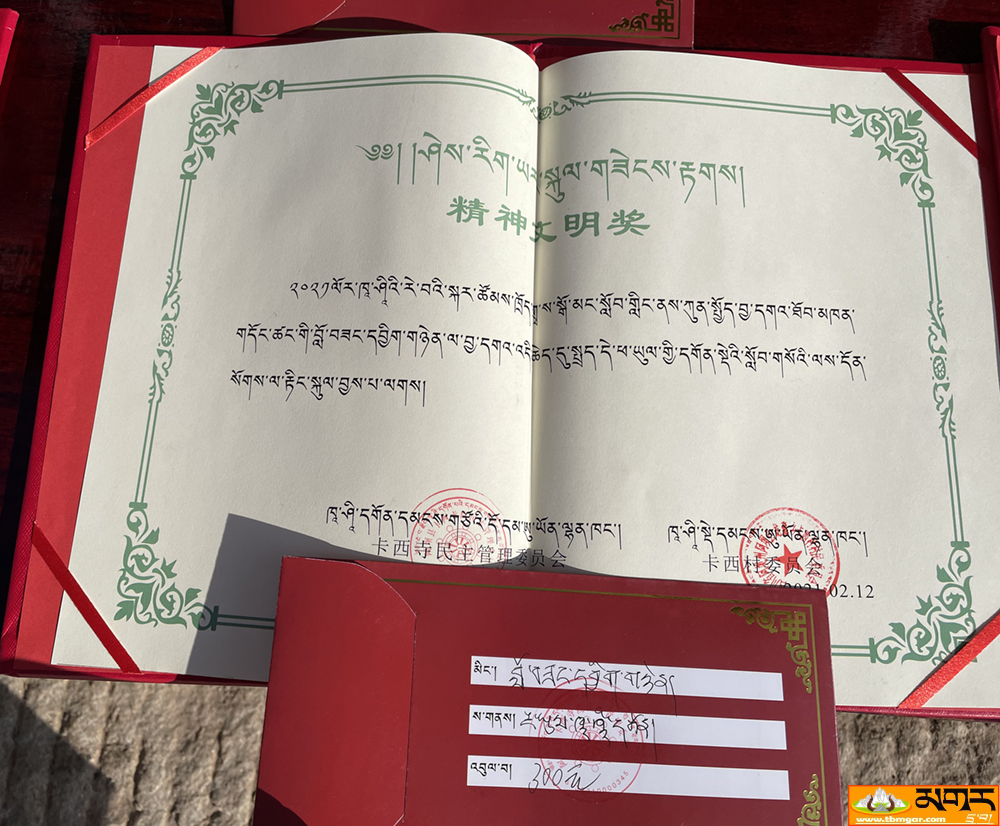 ༄༅། །ཤེས་རིག་ཡར་སྐུལ་གཟེངས་རྟགས།
精神文明奖
༢༠༢༡ལོར་ཁྭ་ཤིའི་རེ་བའི་སྐར་ཚོམས་ཁྲོད་ སྒོ་མང་སློབ་གླིང་ནས་ཀུན་སྤྱོད་བྱ་དགའ་ཐོབ་མཁན་
གདོང་ཚང་གི་བློ་བཟང་དབྱིག་གཉེན་ལ་བྱ་དགའ་འདི་ཆེད་དུ་སྤྲད་དེ་ཕ་ཡུལ་གྱི་དགོན་སྡེའི་སློབ་གསོའི་ལས་དོན་
སོགས་ལ་རྟིང་སྐུལ་བྱས་པ་ལགས།
དགོན་དམངས་གཙོའི་དོ་དམ་ཨུ་ཡོན་ལྷན་ཁང་།
卡西寺民主管理委员会
སྡེ་དམངས་ཨུ་ཡོན་ལྷན་ཁང་།
卡西村委员会
2021.02.12
མིང་། བློ་བཟང་དབྱིག་གཉེན།
ས་གནས།
འབུལ་བ། 300元
མགར་
དྲ་བ།
www.tbmgar.com